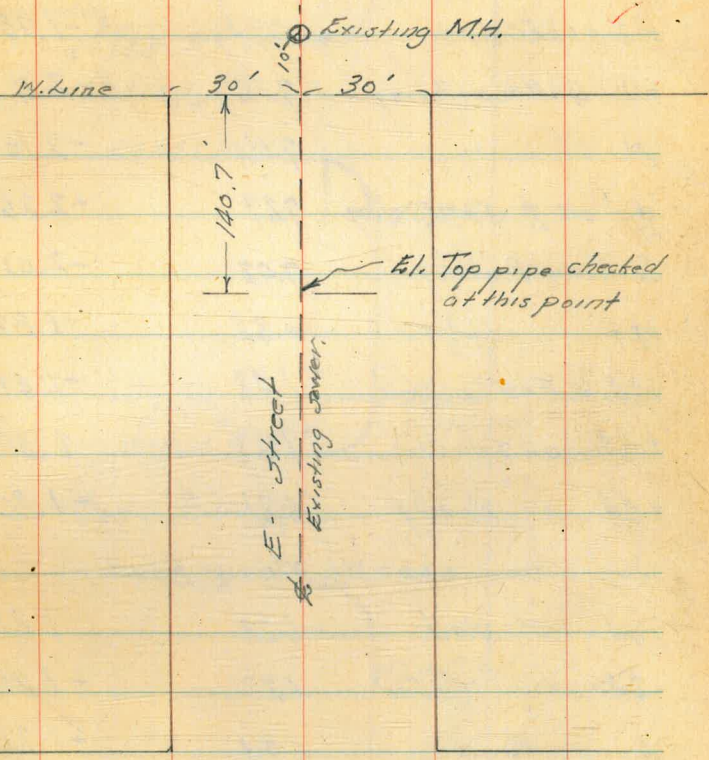 Existing M.H.
10'
W. Line
30'
30'
140.7'
El. Top pipe checked
at this point
E - Street
Existing Sewer.
℄